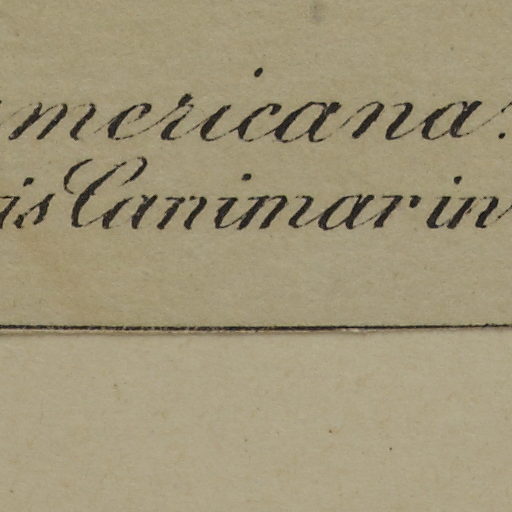 mericana.
is Canimar in